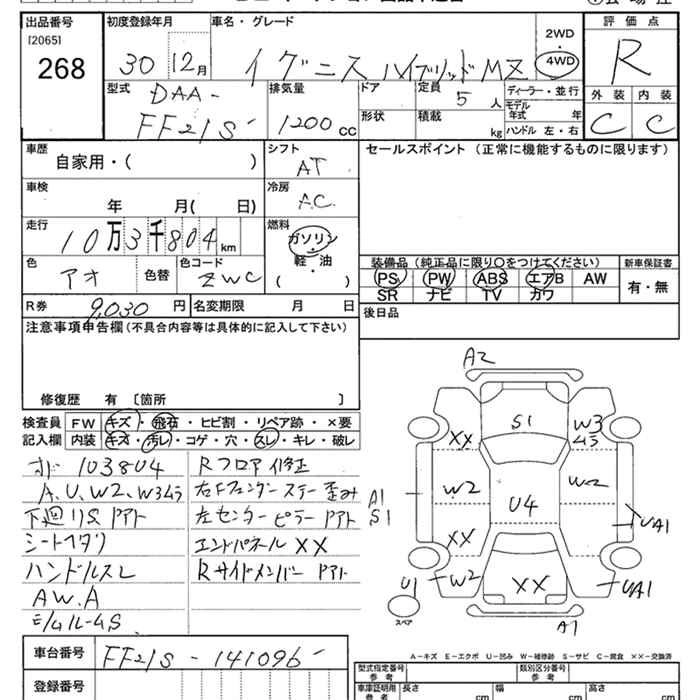 出品番号
[2065]
268
初度登録年月
30 12月
車名・グレード
イグニス ハイブリッド MZ
2WD
・
4WD
評価点
R
外装 内装
C C
型式
DAA-
FF21S
排気量
1200 cc
ドア
形状
定員
5 人
積載
kg
ディーラー・並行
モデル
年式 年
ハンドル 左・右
車歴
自家用・( )
シフト
AT
セールスポイント (正常に機能するものに限ります)
車検
年 月( 日)
冷房
AC
走行
10万3千804km
燃料
ガソリン
・
軽・油
( )
色
アオ
色替
色コード
ZWC
装備品 (純正品に限り〇をつけてください)
PS PW ABS エアB AW
SR ナビ TV カワ
新車保証書
有・無
R券
9,030 円
名変期限 月 日
後日品
注意事項申告欄 (不具合内容等は具体的に記入して下さい)
修復歴 有 〔箇所 〕
検査員
記入欄
FW キズ・飛石・ヒビ割・リペア跡・×要
内装 キズ・汚レ・コゲ・穴・スレ・キレ・破レ
103804
A、U、W2、W3ムラ
下廻リS アト
シートヘタリ
ハンドルスレ
AW.A
Rフロア修正
右Fフェンダーステー歪み
左センターピラー アト
エンドパネルXX
Rサイドメンバー アト
A2
S1
W3
ムラ
XX
W2
W2
A1
S1
U4
XX
UA1
U1
W2
XX
UA1
スペア
A1
A-キズ E-エクボ U-凹み W-補修跡 S-サビ C-腐食 XX-交換済
車台番号
FF21S-141096
登録番号
型式指定番号
参考
類別区分番号
参考
車庫証明用
参考
長さ cm
幅 cm
高さ cm